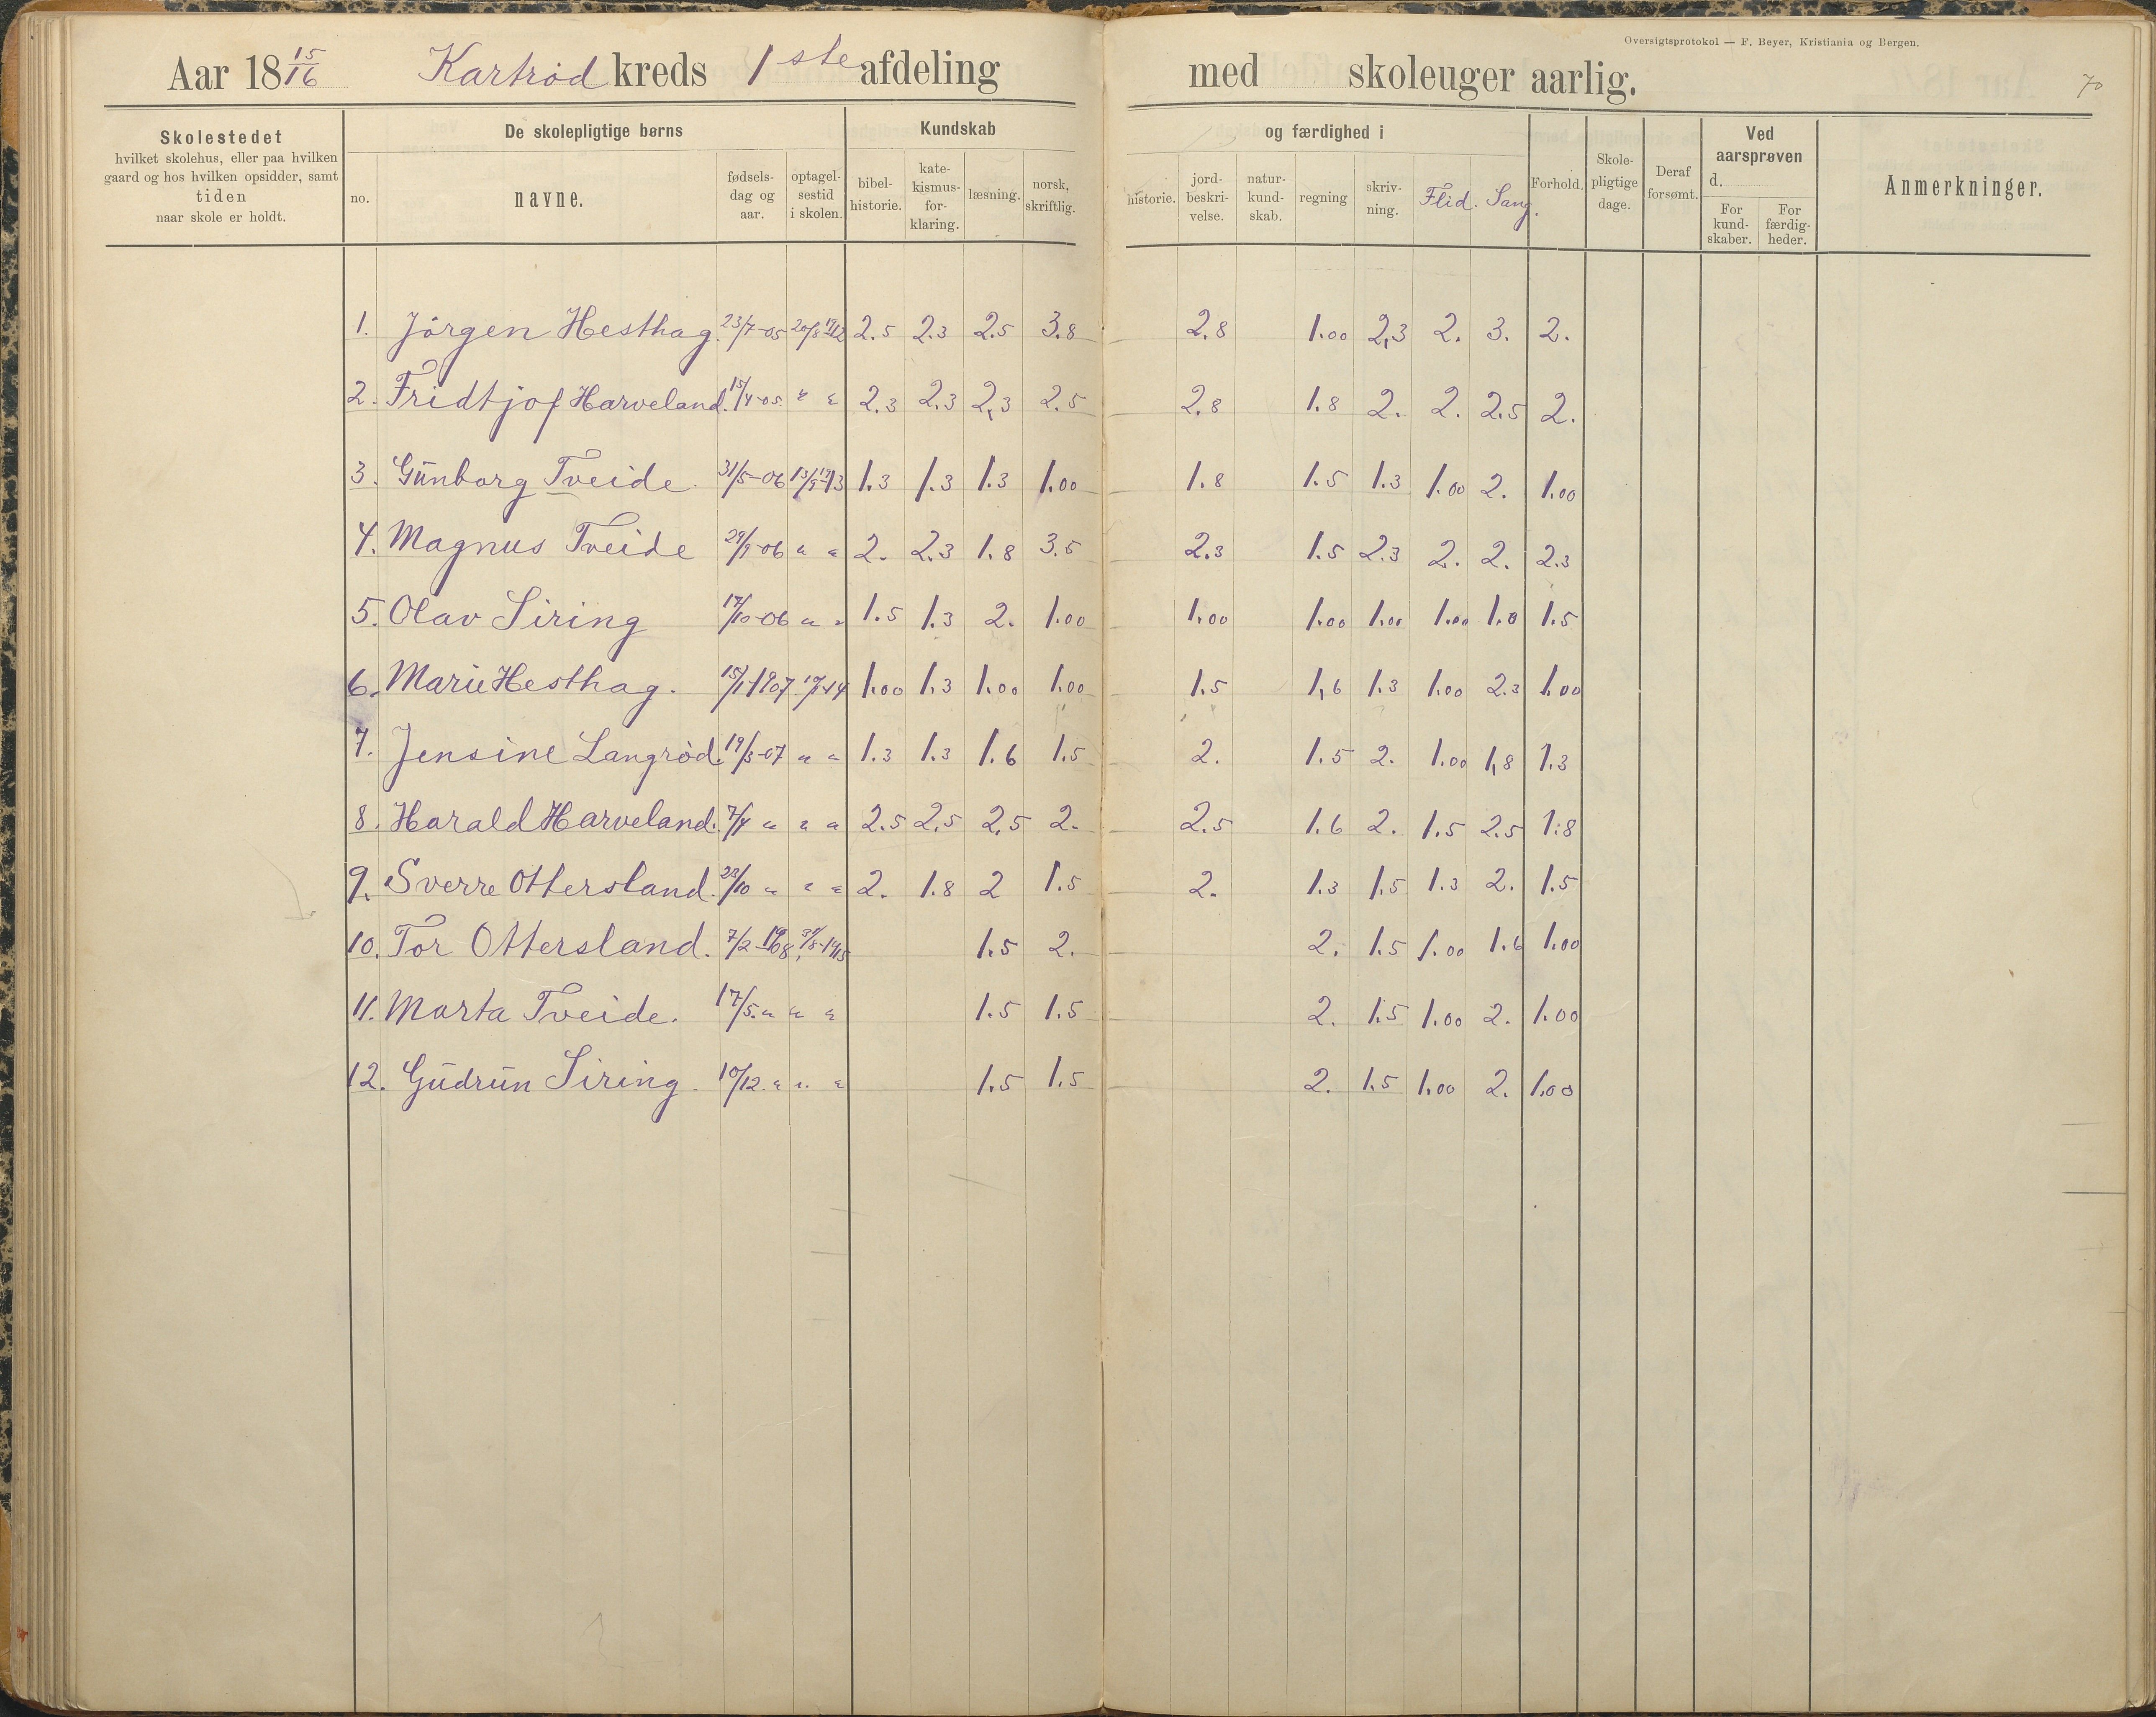 Oversigtsprotokol — F. Beyer, Kristiania og Bergen.
Aar 18 15/16 Kartrød kreds 1ste afdeling med skoleuger aarlig. 70
Skolestedet
hvilket skolehus, eller paa hvilken
gaard og hos hvilken opsidder, samt
tiden
naar skole er holdt.
De skolepligtige børns
no.
navne.
fødsels-
dag og
aar.
optagel-
sestid
i skolen.
Kundskab
bibel-
historie.
kate-
kismus-
for-
klaring.
læsning.
norsk,
skriftlig.
og færdighed i
historie.
jord-
beskri-
velse.
natur-
kund-
skab.
regning
skriv-
ning.
Flid.
Sang.
Forhold.
Skole-
pligtige
dage.
Deraf
forsømt.
Ved
aarsprøven
d.
For
kund-
skaber.
For
færdig-
heder.
Anmerkninger.
1. Jörgen Hesthag. 23/7-05 20/8 1912 2.5 2.3 2.5 3.8 2.8 1.00 2,3 2. 3. 2.
2. Fridtjof Harveland. 15/4-05 " " 2.3 2.3 2,3 2.5 2.8 1.8 2. 2. 2.5 2.
3. Gūnborg Tveide. 31/5-06 1.3 1.3 1.3 1.00 1.8 1.5 1.3 1.00 2. 1.00
4. Magnus Tveide 29/9-06 " " 2. 2.3 1.8 3.5 2.3 1.5 2.3 2. 2. 2.3
5. Olav Siring 17/10-06 " " 1.5 1.3 2. 1.00 1.00 1.00 1.00 1.00 1.0 1.5
6. Marie Hesthag. 15/1-1907 1.00 1.3 1.00 1.00 1.5 1,6 1.3 1.00 2.3 1.00
7. Jensine Langröd. 19/3-07 " " 1.3 1.3 1.6 1.5 2. 1.5 2. 1.00 1,8 1.3
8. Harald Harveland. 7/4 " " " 2.5 2,5 2,5 2. 2.5 1.6 2. 1.5 2.5 1.8
9. Sverre Ottersland. 23/10 " " " 2. 1.8 2 1.5 2. 1.3 1.5 1.3 2. 1.5
10. Tor Ottersland. 7/2-1908 1.5 2. 2. 1.5 1.00 1.6 1.00
11. Marta Tveide. 17/5. " " " 1.5 1.5 2. 1.5 1.00 2. 1.00
12. Gūdrūn Siring. 10/12. " " " 1.5 1.5 2. 1.5 1.00 2. 1.00